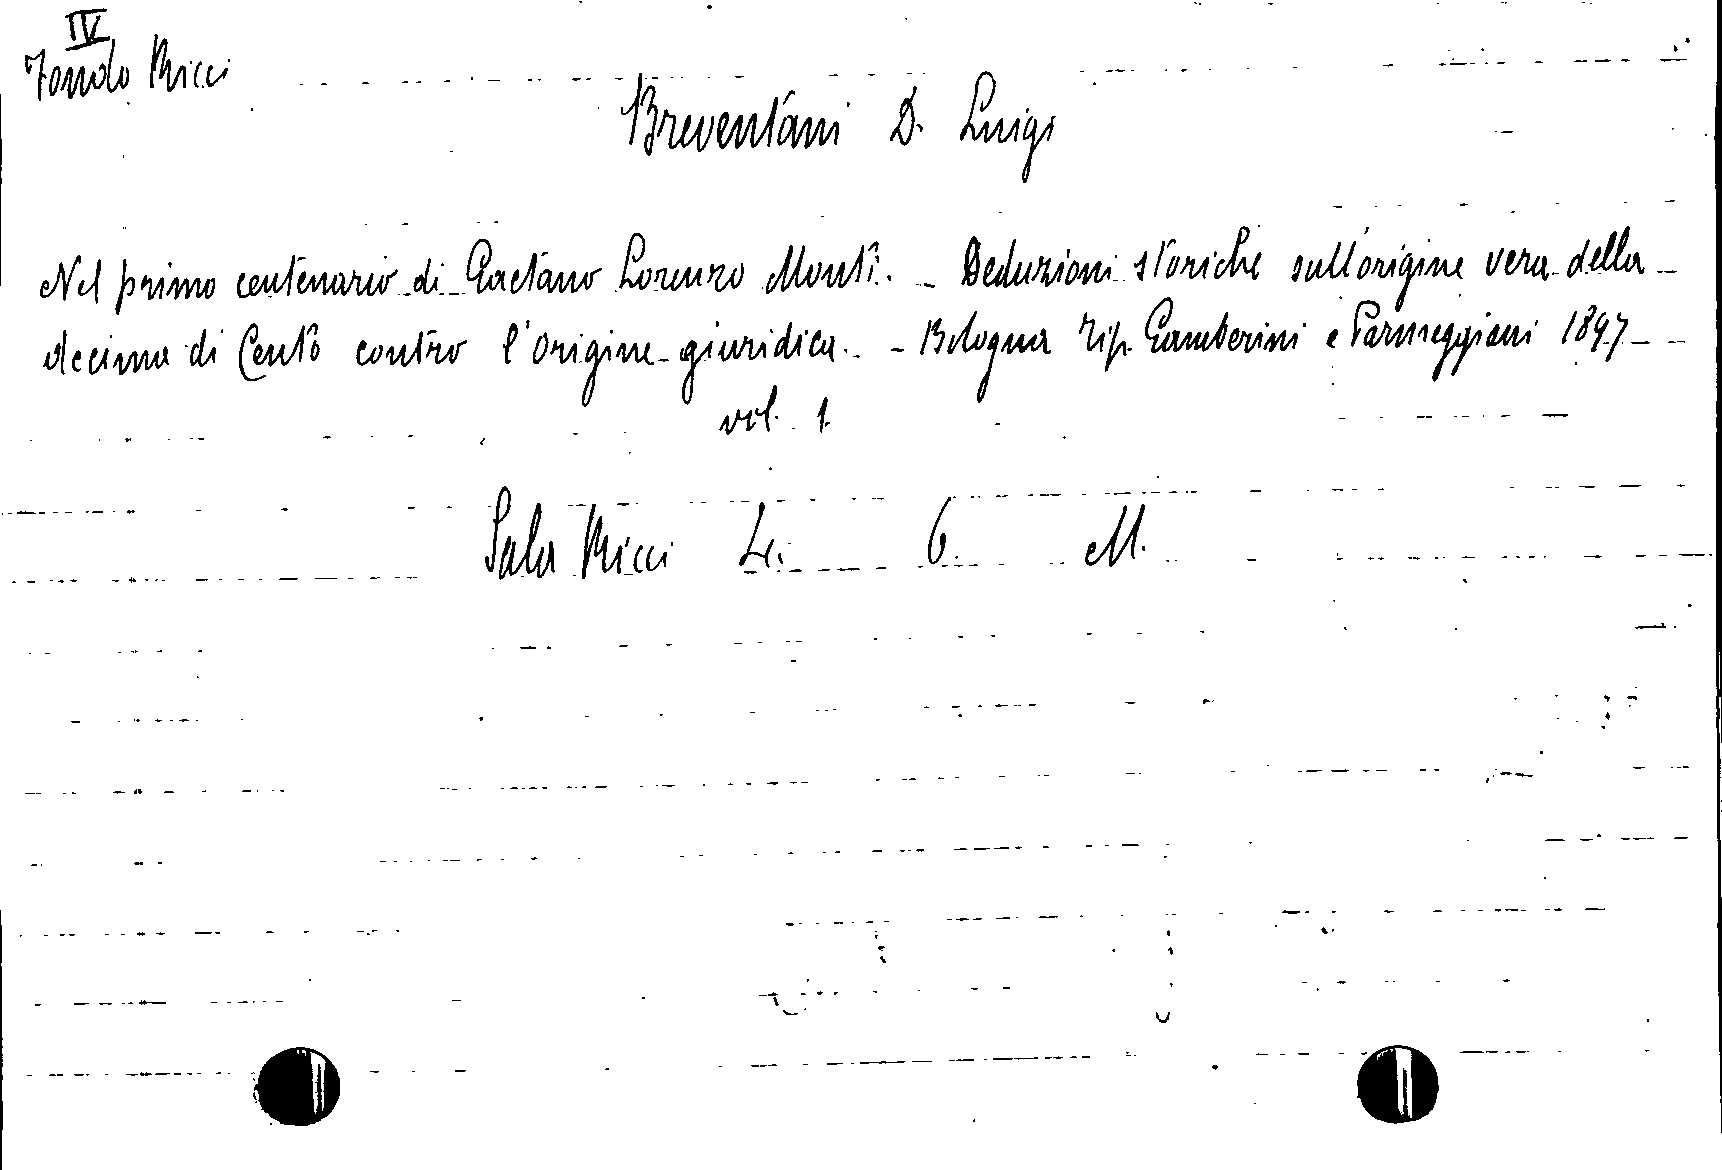 IV
Fondo Ricci
Breventani D. Luigi
Nel primo centenario di Gaetano Lorenzo Monti. - Deduzioni storiche sull'origine vera della
decima di Cento contro l'origine giuridica. - Bologna Tip. Gamberini e Parmeggiani 1897
vol. 1.
Sala Ricci L. 6. M.